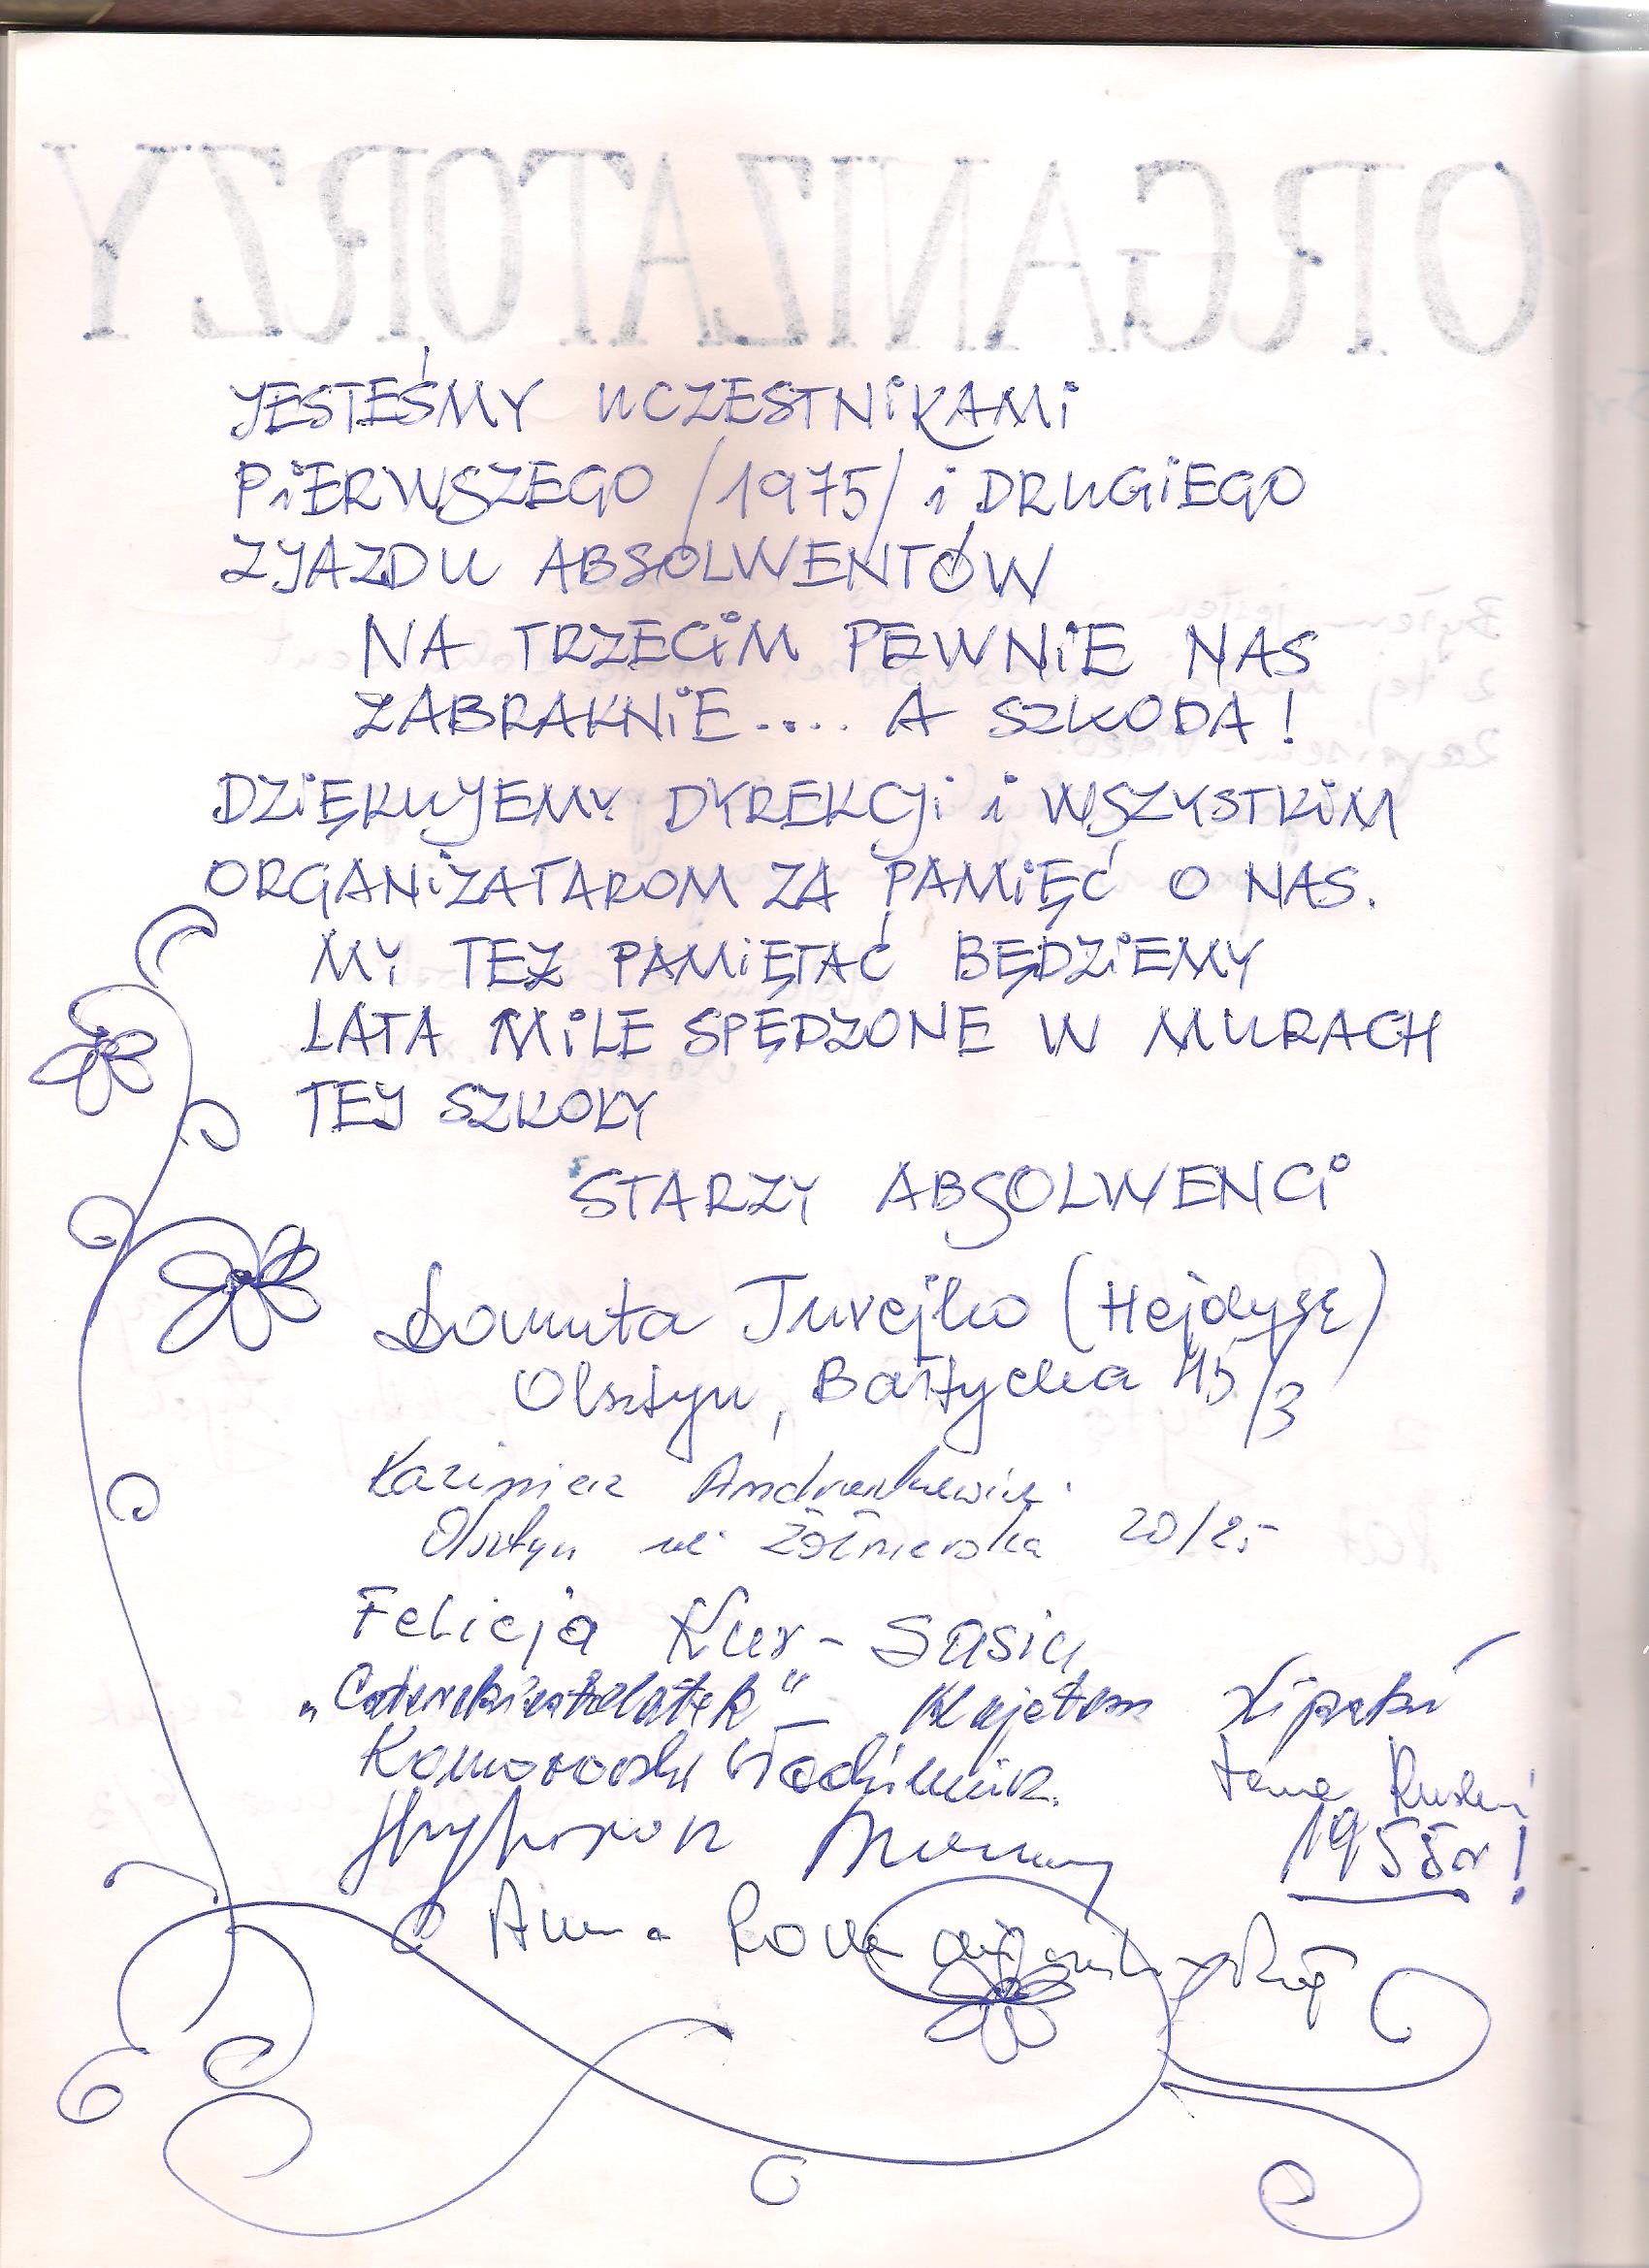 ORGANIZATORZY
JESTEŚMY UCZESTNIKAMI
PIERWSZEGO /1975/ i DRUGIEGO
ZJAZDU ABSOLWENTÓW
NA TRZECIM PEWNIE NAS
ZABRAKNIE.... A SZKODA!
DZIĘKUJEMY DYREKCJI i WSZYSTKIM
ORGANIZATAROM ZA PAMIĘĆ O NAS.
MY TEŻ PAMIĘTAĆ BĘDZIEMY
LATA MILE SPĘDZONE W MURACH
TEJ SZKOŁY
STARZY ABSOLWENCI
Danuta Jurejko (Hejdysz)
Olsztyn, Bałtycka 45/3
Kazimierz
Olsztyn ul. Żołnierska 20/25
Felicja Kur - Sasin
„Czterdziestolatek" – Kajetan Lipski
Komorowski Włodzimierz.
1955r!
Anna